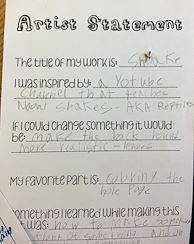 Artist Statement
The title of my work is: Snake
I was inspired by: a Yotube
Channel that teaches
About snakes - AKA Reptiles
If I could change something it would
be: make the back round
more realistic -
My favorite part is: coloring the
hole Page
omething I learned while making this
was: how to make